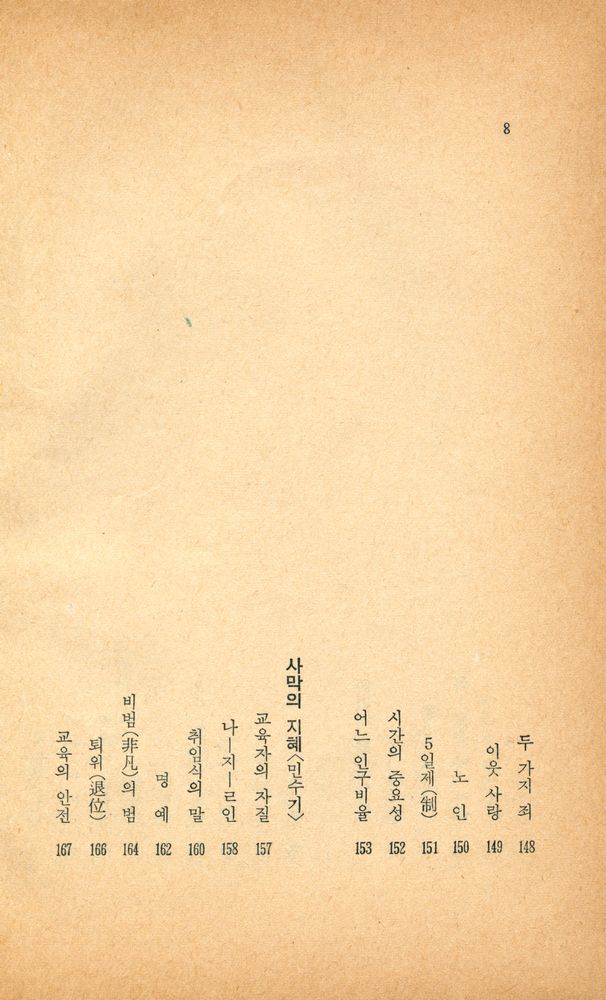 8
두 가지 죄 148
이웃 사랑 149
노 인 150
5일제(制) 151
시간의 중요성 152
어느 인구비율 153
사막의 지혜〈민수기〉
교육자의 자질 157
나—지—ㄹ인 158
취임식의 말 160
명 예 162
비범(非凡)의 범 164
퇴위(退位) 166
교육의 안전 167